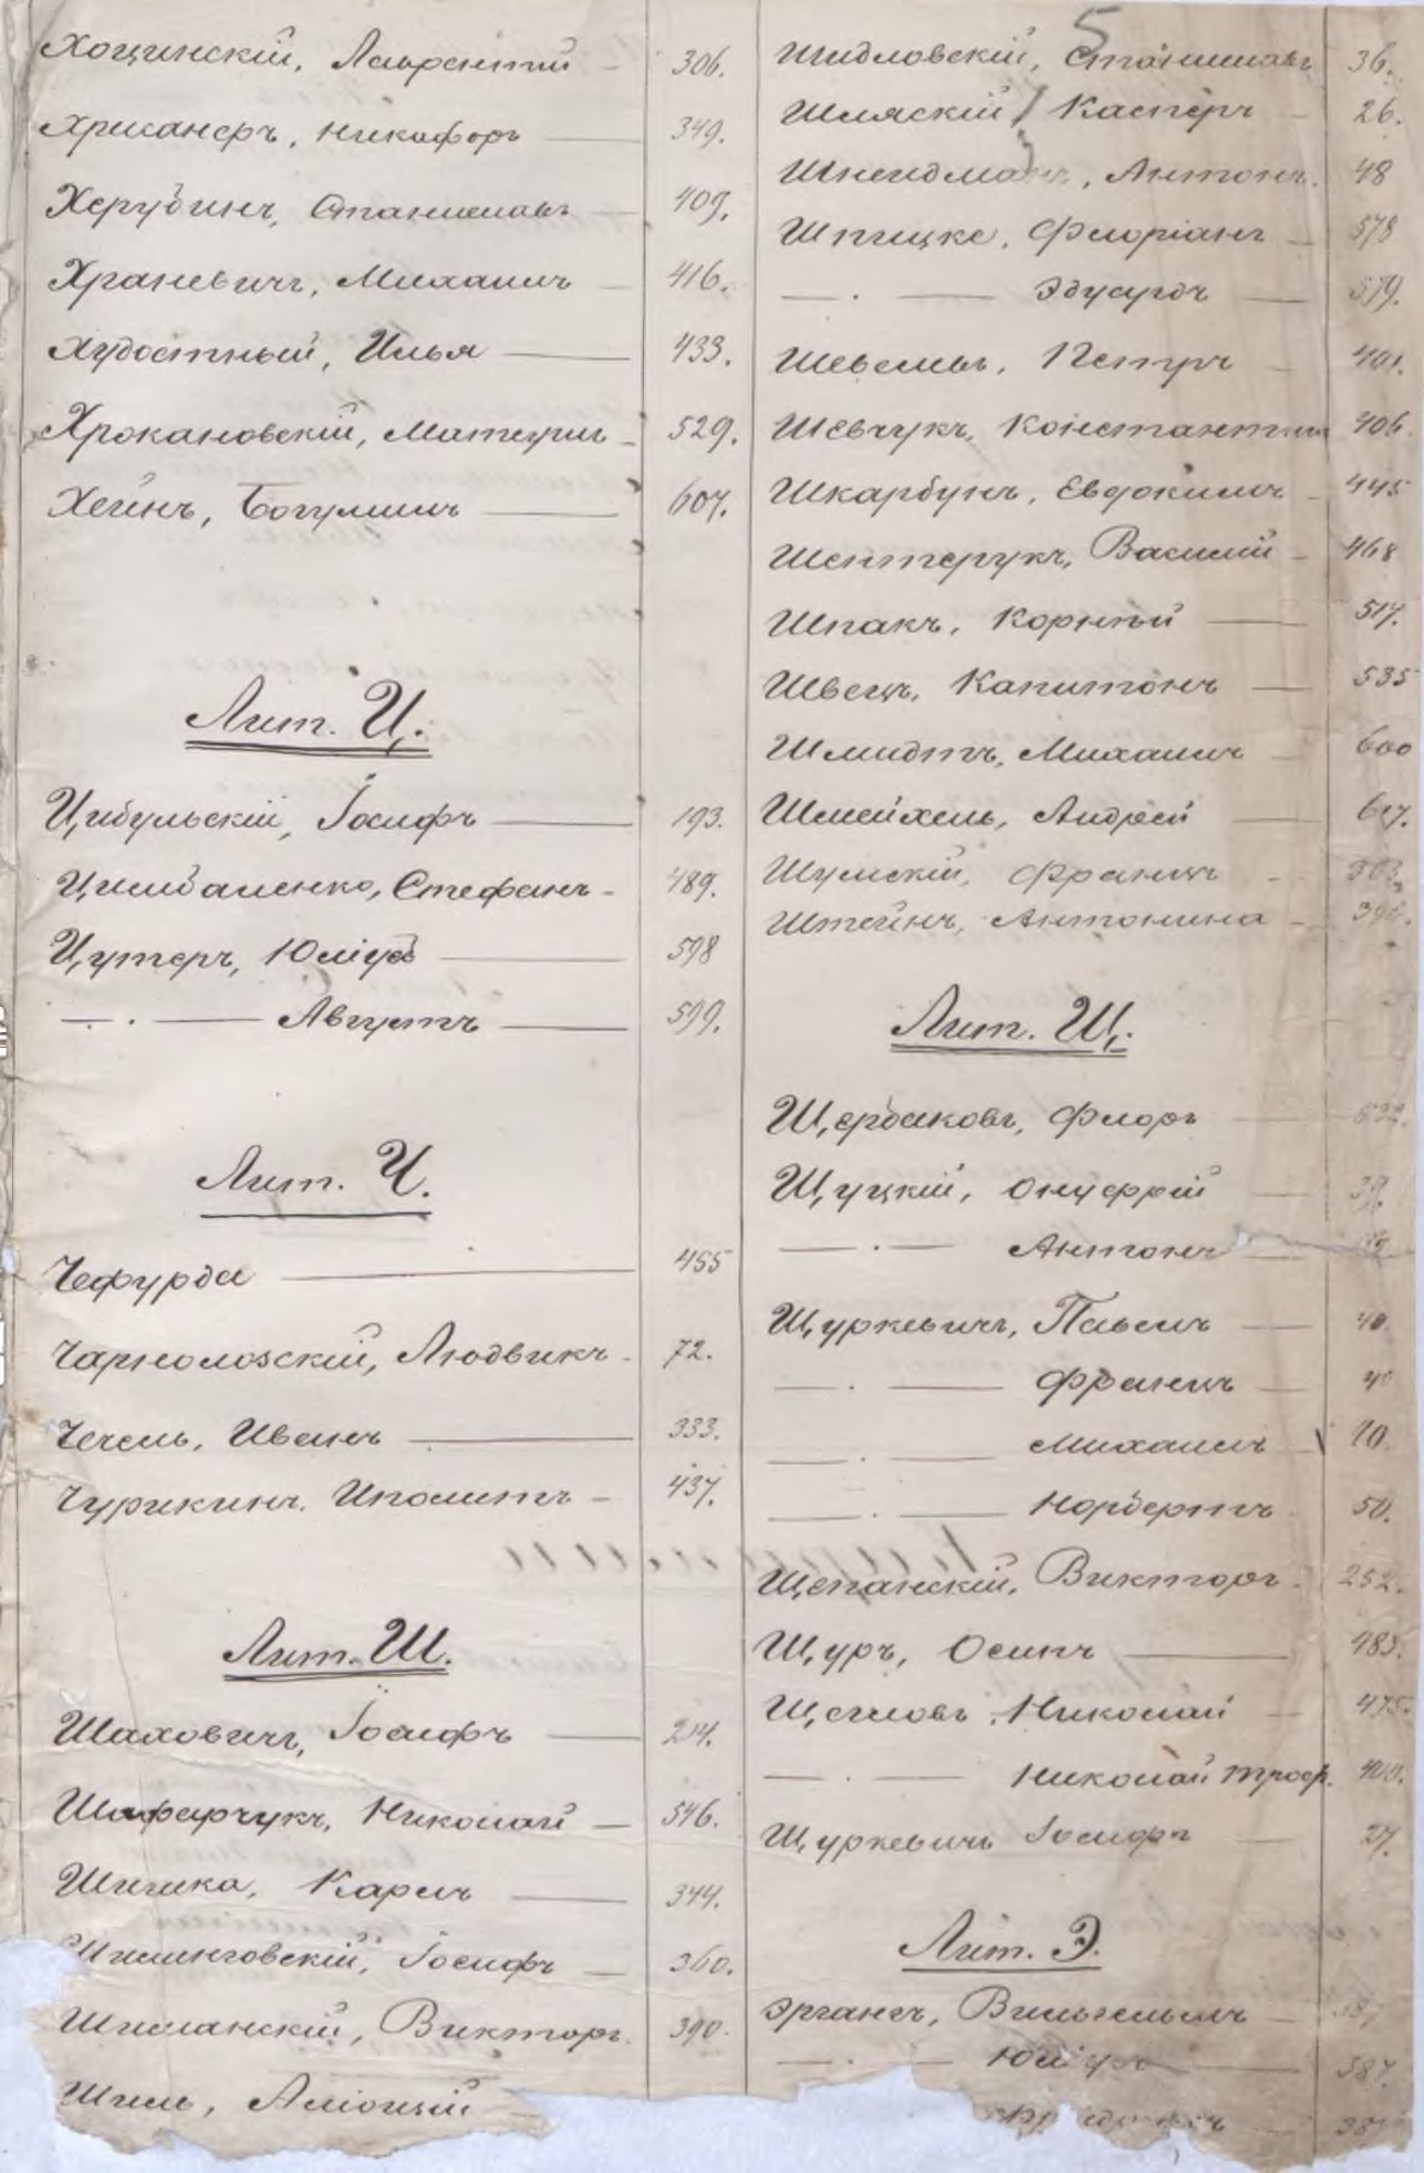 Хоцинскій, Лаврентій - 306.
Хрисанеръ, Никифоръ — 349.
Херубинъ, Станиславъ — 409.
Храневичъ, Михаилъ — 416.
Худостный, Илья — 433.
Хрокановскій, Матеушъ - 529.
Хейнъ, Богумилъ — 607.
Лит. Ц.
Цибульскій, Іосифъ — 193.
Цимбаленко, Стефанъ - 489.
Цутеръ, Юліусъ — 598
— . — Августъ — 599.
Лит. Ч.
Чефурда — 455
Чарнолозскій, Людвикъ - 72.
Чечель, Иванъ — 333.
Чурикинъ. Иполитъ - 437.
Лит. Ш.
Шаховичъ, Іосифъ — 214.
Шафарчукъ, Николай — 546.
Шишка, Карлъ — 344.
Шимановскій, Іосифъ — 360.
Шиманскій, Викторъ. 390.
Шиль, Алюизій
5
Шидловскій, Станиславъ 36.
Шляскій, Касперъ - 26.
Шнейдманъ, Антонъ. 48
Шпицке, Флоріанъ - 578
— . — Эдуардъ — 579.
Шевелевъ, Петръ - 401.
Шевчукъ, Константинъ 406
Шкарбунъ, Евдокимъ - 445
Шептерукъ, Василій - 468
Шпакъ, Корнѣй — 517.
Швецъ, Капитонъ — 535
Шмидтъ, Михаилъ - 600
Шмейхель, Андрей — 617.
Шумскій, Францъ -
Штейнъ, Антонина -
Лит. Щ.
Щербаковъ, Флоръ
Щуцкій, Онуфрій — 39.
— . — Антонъ —
Щуркевичъ, Павелъ — 40.
— . — Францъ — 40
— . — Михаилъ - 40.
— . — Норбертъ 50.
Щепанскій, Викторъ. 252.
Щуръ, Осипъ — 483.
Щегловъ, Николай - 475.
— . — Николай Троф. 400.
Щуркевичъ Іосифъ — 27.
Лит. Э.
Эрганъ, Вильгельмъ — 387
— . — Юліусъ — 387.